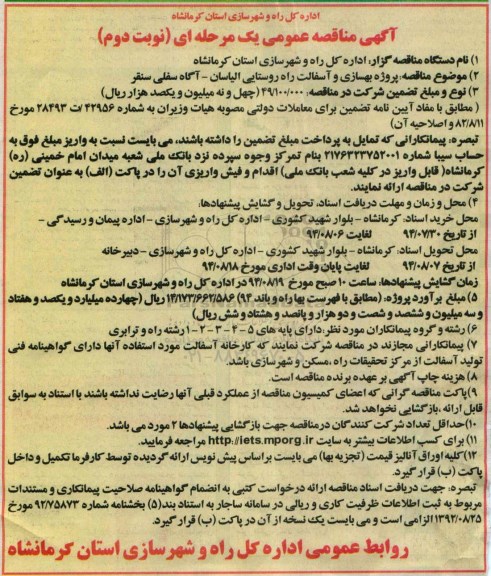 اداره کل راه و شهرسازی استان کرمانشاه
آگهی مناقصه عمومی یک مرحله ای (نوبت دوم)
۱) نام دستگاه مناقصه گزار: اداره کل راه و شهرسازی استان کرمانشاه
۲) موضوع مناقصه: پروژه بهسازی و آسفالت راه روستایی الیاسان - آگاه سفلی سنقر
۳) نوع و مبلغ تضمین شرکت در مناقصه: ۴۹/۱۰۰/۰۰۰ (چهل و نه میلیون و یکصد هزار ریال)
( مطابق با مفاد آیین نامه تضمین برای معاملات دولتی مصوبه هیات وزیران به شماره ۴۲۹۵۶ /ت ۲۸۴۹۳ مورخ
۸۲/۸/۱۱ و اصلاحیه آن)
تبصره: پیمانکارانی که تمایل به پرداخت مبلغ تضمین را داشته باشند، می بایست نسبت به واریز مبلغ فوق به
حساب سیبا شماره ۲۱۷۶۳۳۳۷۵۲۰۰۱ بنام تمرکز وجوه سپرده نزد بانک ملی شعبه میدان امام خمینی (ره)
کرمانشاه( قابل واریز در کلیه شعب بانک ملی) اقدام و فیش واریزی آن را در پاکت (الف) به عنوان تضمین
شرکت در مناقصه ارائه نمایند.
۴) محل و زمان و مهلت دریافت اسناد، تحویل و گشایش پیشنهادها:
محل خرید اسناد: کرمانشاه - بلوار شهید کشوری - اداره کل راه و شهرسازی - اداره پیمان و رسیدگی -
از تاریخ ۹۴/۰۷/۳۰ لغایت ۹۴/۰۸/۰۶
محل تحویل اسناد: کرمانشاه - بلوار شهید کشوری - اداره کل راه و شهرسازی - دبیرخانه
از تاریخ ۹۴/۰۸/۰۷ لغایت پایان وقت اداری مورخ ۹۴/۰۸/۱۸
زمان گشایش پیشنهادها، ساعت ۱۰ صبح مورخ ۹۴/۰۸/۱۹ در اداره کل راه و شهرسازی استان کرمانشاه
۵) مبلغ برآورد پروژه: (مطابق با فهرست بها راه و باند ۹۴) ۱۴/۱۷۳/۶۶۲/۵۸۶ ریال (چهارده میلیارد و یکصد و هفتاد
و سه میلیون و ششصد و شصت و دو هزار و پانصد و هشتاد و شش ریال)
۶) رشته و گروه پیمانکاران مورد نظر: دارای پایه های ۵ - ۴ - ۳ - ۲ - ۱ رشته راه و ترابری
۷) پیمانکارانی مجازند در مناقصه شرکت نمایند که کارخانه آسفالت مورد استفاده آنها دارای گواهینامه فنی
تولید آسفالت از مرکز تحقیقات راه ،مسکن و شهرسازی باشد.
۸) هزینه چاپ آگهی بر عهده برنده مناقصه است.
۹) پاکت مناقصه گرانی که اعضای کمیسیون مناقصه از عملکرد قبلی آنها رضایت نداشته باشند با استناد به سوابق
قابل ارائه ،بازگشایی نخواهد شد.
۱۰) حداقل تعداد شرکت کنندگان در مناقصه جهت بازگشایی پیشنهادها ۲ مورد می باشد.
۱۱) برای کسب اطلاعات بیشتر به سایت http://iets.mporg.ir مراجعه فرمایید.
۱۲) کلیه اوراق آنالیز قیمت (تجزیه بها) می بایست براساس پیش نویس ارائه گردیده توسط کارفرما تکمیل و داخل
پاکت (ب) قرار گیرد.
تبصره: جهت دریافت اسناد مناقصه ارائه درخواست کتبی به انضمام گواهینامه صلاحیت پیمانکاری و مستندات
مربوط به ثبت اطلاعات ظرفیت کاری و ریالی در سامانه ساجار به استناد بند(۵) بخشنامه شماره ۹۲/۷۵۸۷۳ مورخ
۱۳۹۲/۰۸/۲۵ الزامی است و می بایست یک نسخه از آن در پاکت (ب) قرار گیرد.
روابط عمومی اداره کل راه و شهرسازی استان کرمانشاه